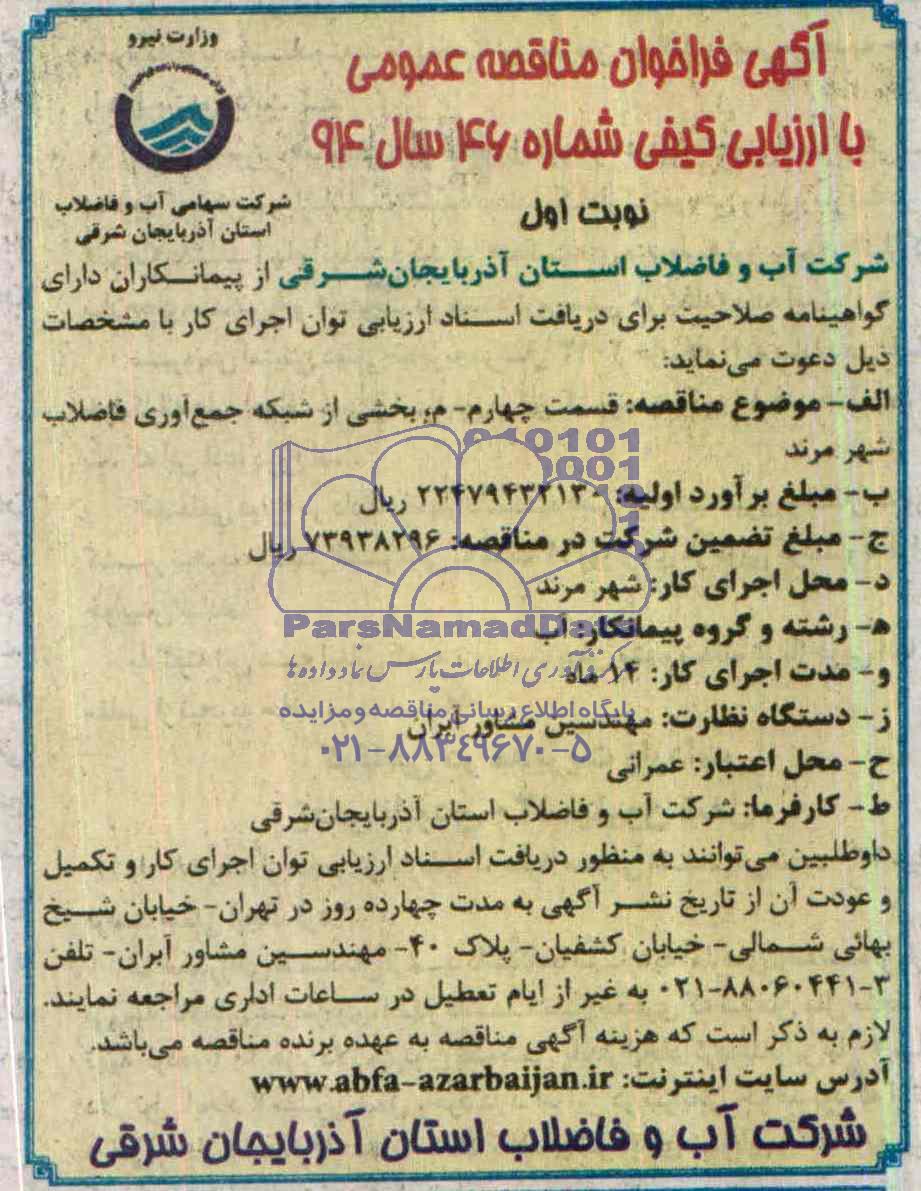 وزارت نیرو
شرکت سهامی آب و فاضلاب
استان آذربایجان شرقی
آگهی فراخوان مناقصه عمومی
با ارزیابی کیفی شماره ۴۶ سال ۹۴
نوبت اول
شرکت آب و فاضلاب استان آذربایجان‌شرقی از پیمانکاران دارای
گواهینامه صلاحیت برای دریافت اسناد ارزیابی توان اجرای کار با مشخصات
ذیل دعوت می‌نماید:
الف- موضوع مناقصه: قسمت چهارم- م، بخشی از شبکه جمع‌آوری فاضلاب
شهر مرند
ب- مبلغ برآورد اولیه: ۲۲۴۷۹۴۳۲۱۳۰ ریال
ج- مبلغ تضمین شرکت در مناقصه: ۷۳۹۳۸۲۹۶ ریال
د- محل اجرای کار: شهر مرند
ه- رشته و گروه پیمانکار: آب
و- مدت اجرای کار: ۱۴ ماه
ز- دستگاه نظارت: مهندسین مشاور آبران
ح- محل اعتبار: عمرانی
ط- کارفرما: شرکت آب و فاضلاب استان آذربایجان‌شرقی
داوطلبین می‌توانند به منظور دریافت اسناد ارزیابی توان اجرای کار و تکمیل
و عودت آن از تاریخ نشر آگهی به مدت چهارده روز در تهران- خیابان شیخ
بهائی شمالی- خیابان کشفیان- پلاک ۴۰- مهندسین مشاور آبران- تلفن
۰۲۱-۸۸۰۶۰۴۴۱-۳ به غیر از ایام تعطیل در ساعات اداری مراجعه نمایند.
لازم به ذکر است که هزینه آگهی مناقصه به عهده برنده مناقصه می‌باشد.
آدرس سایت اینترنت: www.abfa-azarbaijan.ir
شرکت آب و فاضلاب استان آذربایجان شرقی
ParsNamadData
مرکز فرآوری اطلاعات پارس نماد داده‌ها
پایگاه اطلاع رسانی مناقصه و مزایده
۰۲۱-۸۸۳۴۹۶۷۰-۵